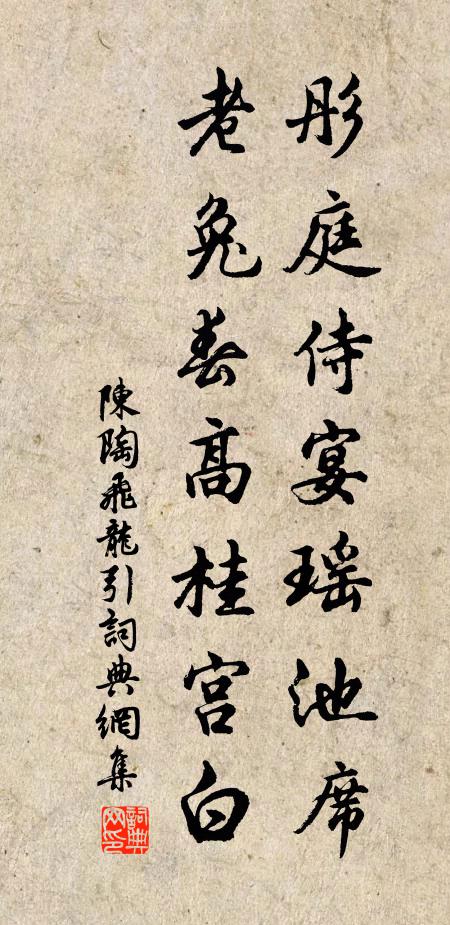 彤庭侍宴瑶池席
老兔春高桂宫白
陳陶飛龍引詞典網集
詞典網印